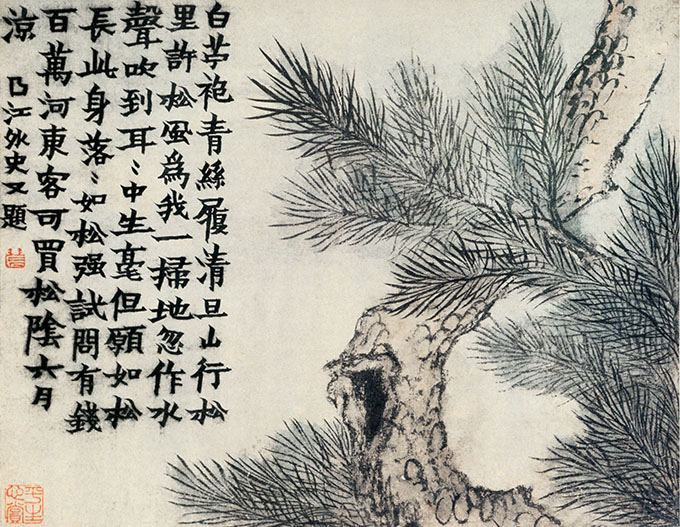 白苧袍青絲履清旦山行松
里許松風爲我一掃地忽作水
聲吹到耳〻中生毫但願如松
長此身落〻如松强試問有錢
百萬河東客可買松陰六月
涼
曲江外史又題
平生心賞